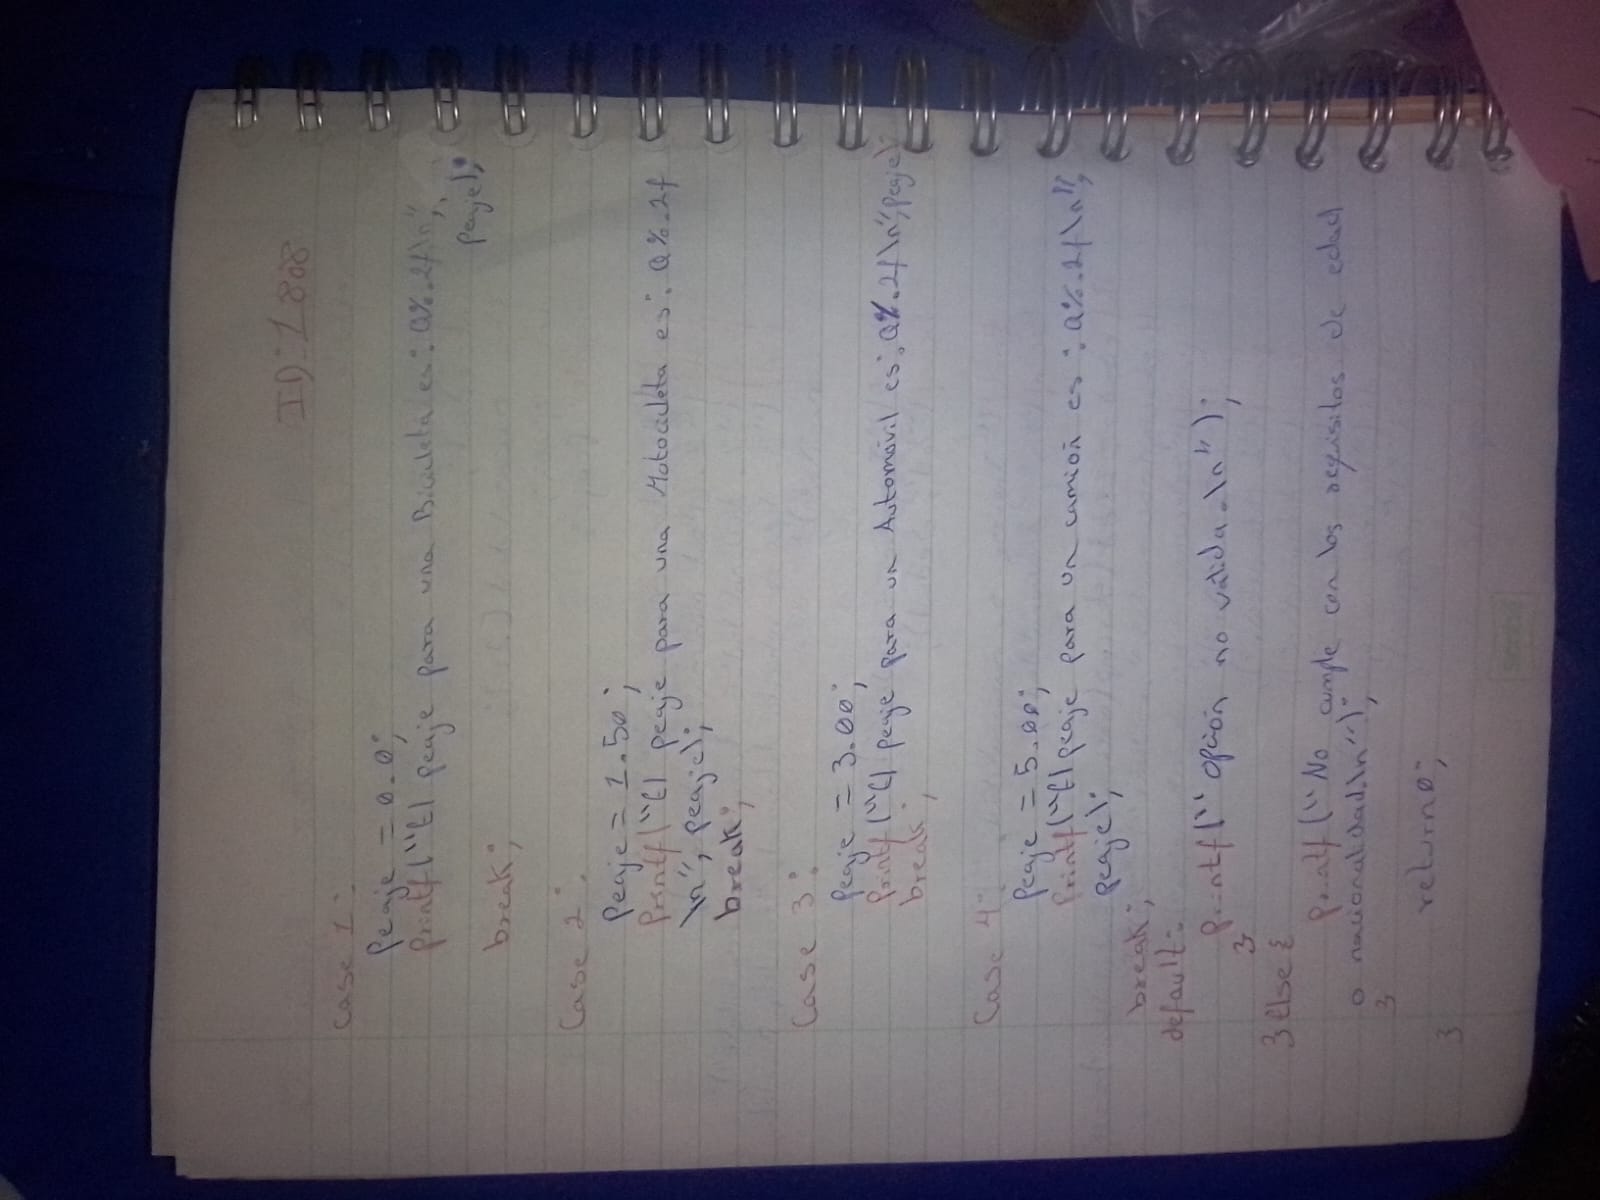 ID: 1808
Case 1:
peaje = 0.0;
printf("El peaje para una Bicicleta es: Q%.2f\n",
peaje);
break;
Case 2:
peaje = 1.50;
printf("El peaje para una Motocicleta es: Q%.2f
\n", peaje);
break;
Case 3:
peaje = 3.00;
printf("El peaje para un Automóvil es: Q%.2f\n", peaje);
break;
Case 4:
peaje = 5.00;
printf("El peaje para un camión es: Q%.2f\n",
peaje);
break;
default:
printf("Opción no valida.\n");
}
}else{
printf("No cumple con los requisitos de edad
o nacionalidad.\n");
}
return0;
}